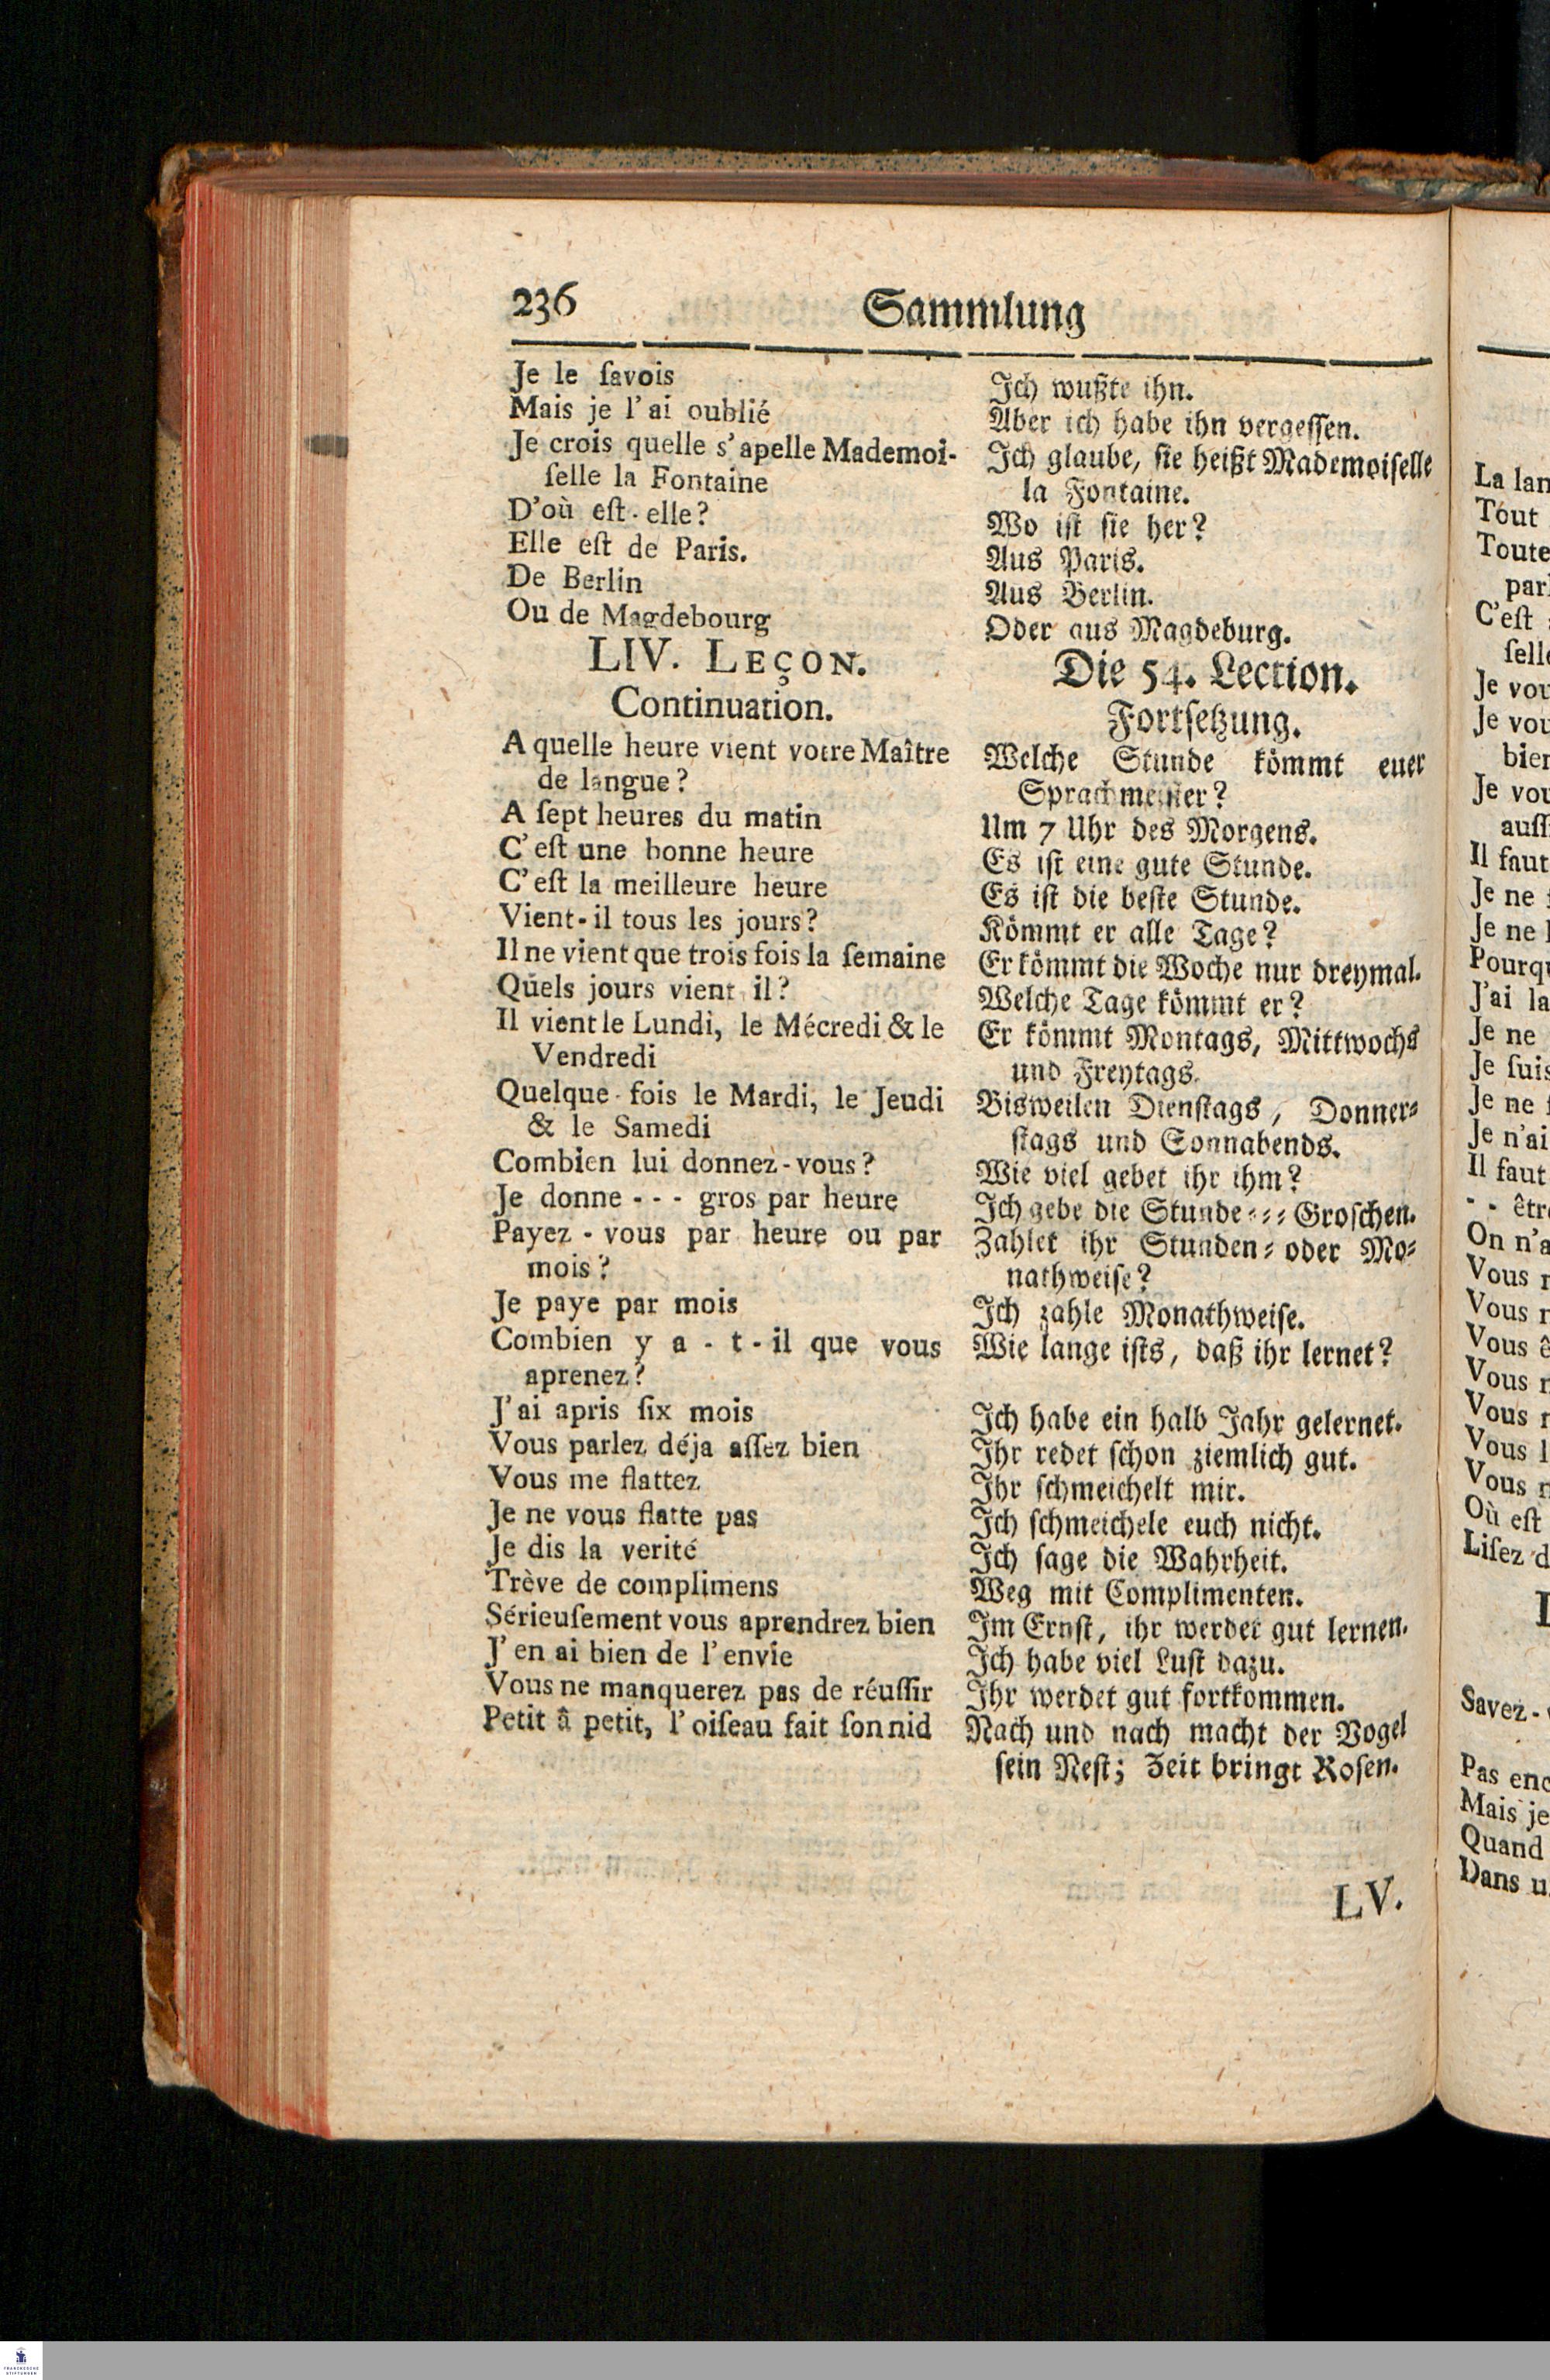 236
Sammlung
Je le ſavois
Mais je l'ai oublié
Je crois quelle s'apelle Mademoi-
ſelle la Fontaine
D'où eſt-elle?
Elle eſt de Paris.
De Berlin
Ou de Magdebourg
LIV. LEÇON.
Continuation.
A quelle heure vient votre Maître
de langue?
A ſept heures du matin
C'eſt une bonne heure
C'eſt la meilleure heure
Vient-il tous les jours?
Il ne vient que trois fois la ſemaine
Quels jours vient il?
Il vient le Lundi, le Mécredi & le
Vendredi
Quelque-fois le Mardi, le Jeudi
& le Samedi
Combien lui donnez-vous?
Je donne - - - gros par heure
Payez-vous par heure ou par
mois?
Je paye par mois
Combien y a-t-il que vous
aprenez?
J'ai apris ſix mois
Vous parlez déja aſſez bien
Vous me flattez
Je ne vous flatte pas
Je dis la verité
Trève de complimens
Sérieuſement vous aprendrez bien
J'en ai bien de l'envie
Vous ne manquerez pas de réuſſir
Petit â petit, l'oiſeau fait ſon nid
Ich wußte ihn.
Aber ich habe ihn vergeſſen.
Ich glaube, ſie heißt Mademoiſelle
la Fontaine.
Wo iſt ſie her?
Aus Paris.
Aus Berlin.
Oder aus Magdeburg.
Die 54. Lection.
Fortſetzung.
Welche Stunde kömmt euer
Sprachmeiſter?
Um 7 Uhr des Morgens.
Es iſt eine gute Stunde.
Es iſt die beſte Stunde.
Kömmt er alle Tage?
Er kömmt die Woche nur dreymal.
Welche Tage kömmt er?
Er kömmt Montags, Mittwochs
und Freytags.
Bisweilen Dienſtags, Donner⸗
ſtags und Sonnabends.
Wie viel gebet ihr ihm?
Ich gebe die Stunde ⸗ ⸗ ⸗ Groſchen.
Zahlet ihr Stunden⸗ oder Mo⸗
nathweiſe?
Ich zahle Monathweiſe.
Wie lange iſts, daß ihr lernet?
Ich habe ein halb Jahr gelernet.
Ihr redet ſchon ziemlich gut.
Ihr ſchmeichelt mir.
Ich ſchmeichele euch nicht.
Ich ſage die Wahrheit.
Weg mit Complimenten.
Im Ernſt, ihr werdet gut lernen.
Ich habe viel Luſt dazu.
Ihr werdet gut fortkommen.
Nach und nach macht der Vogel
ſein Neſt; Zeit bringt Roſen.
LV.
La lan
Tout
Toute
par
C'eſt
ſelle
Je vou
Je vou
bien
Je vou
auſſ
Il faut
Je ne
Je ne
Pourqu
J'ai la
Je ne
Je ſuis
Je ne
Je n'ai
Il faut
- - être
On n'a
Vous
Vous
Vous ê
Vous
Vous
Vous l
Vous
Où eſt
Liſez d
Savez-
Pas enc
Mais je
Quand
Dans u
FRANCKESCHE
STIFTUNGEN